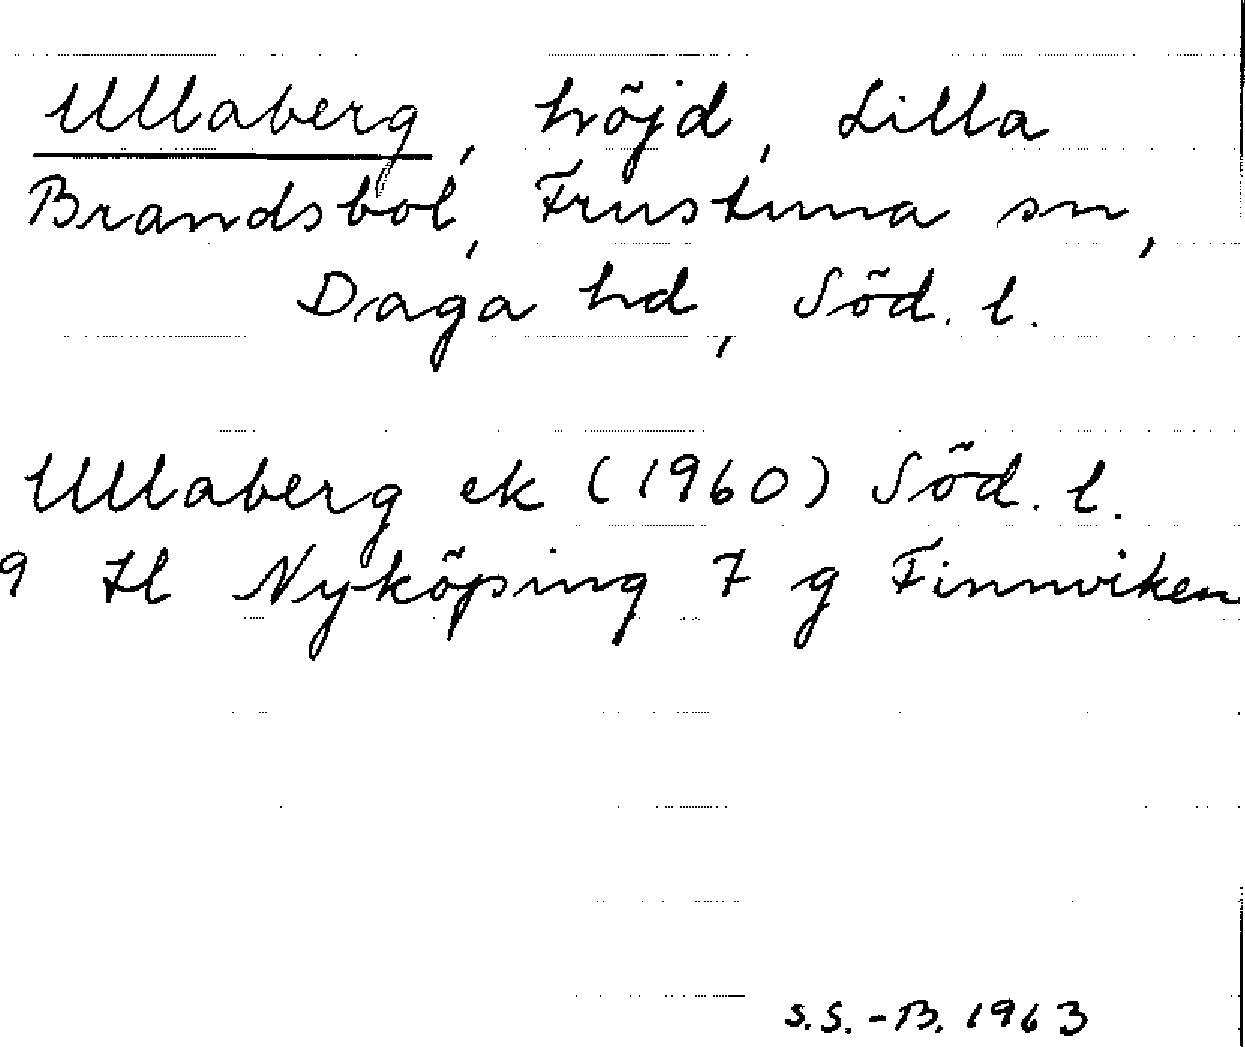 Ullaberg, höjd, Lilla
Brandsbol, Frustuna sn,
Daga hd, Söd. l.
Ullaberg ek (1960) Söd. l.
9 H Nyköping 7 g Finnviken
S.S.-B. 1963